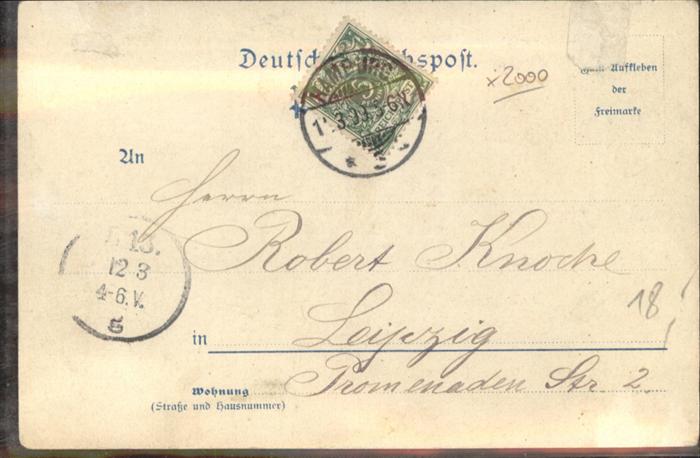 Deutsche Reichspost.
x2000
Zum Aufkleben
der
Freimarke
HAMBURG
3.99. 5-6V.
An
Herrn
Robert Knoche
13.
12 3
4-6.V.
18
in Leipzig
Wohnung
(Straße und Hausnummer)
Promenaden Str 2.